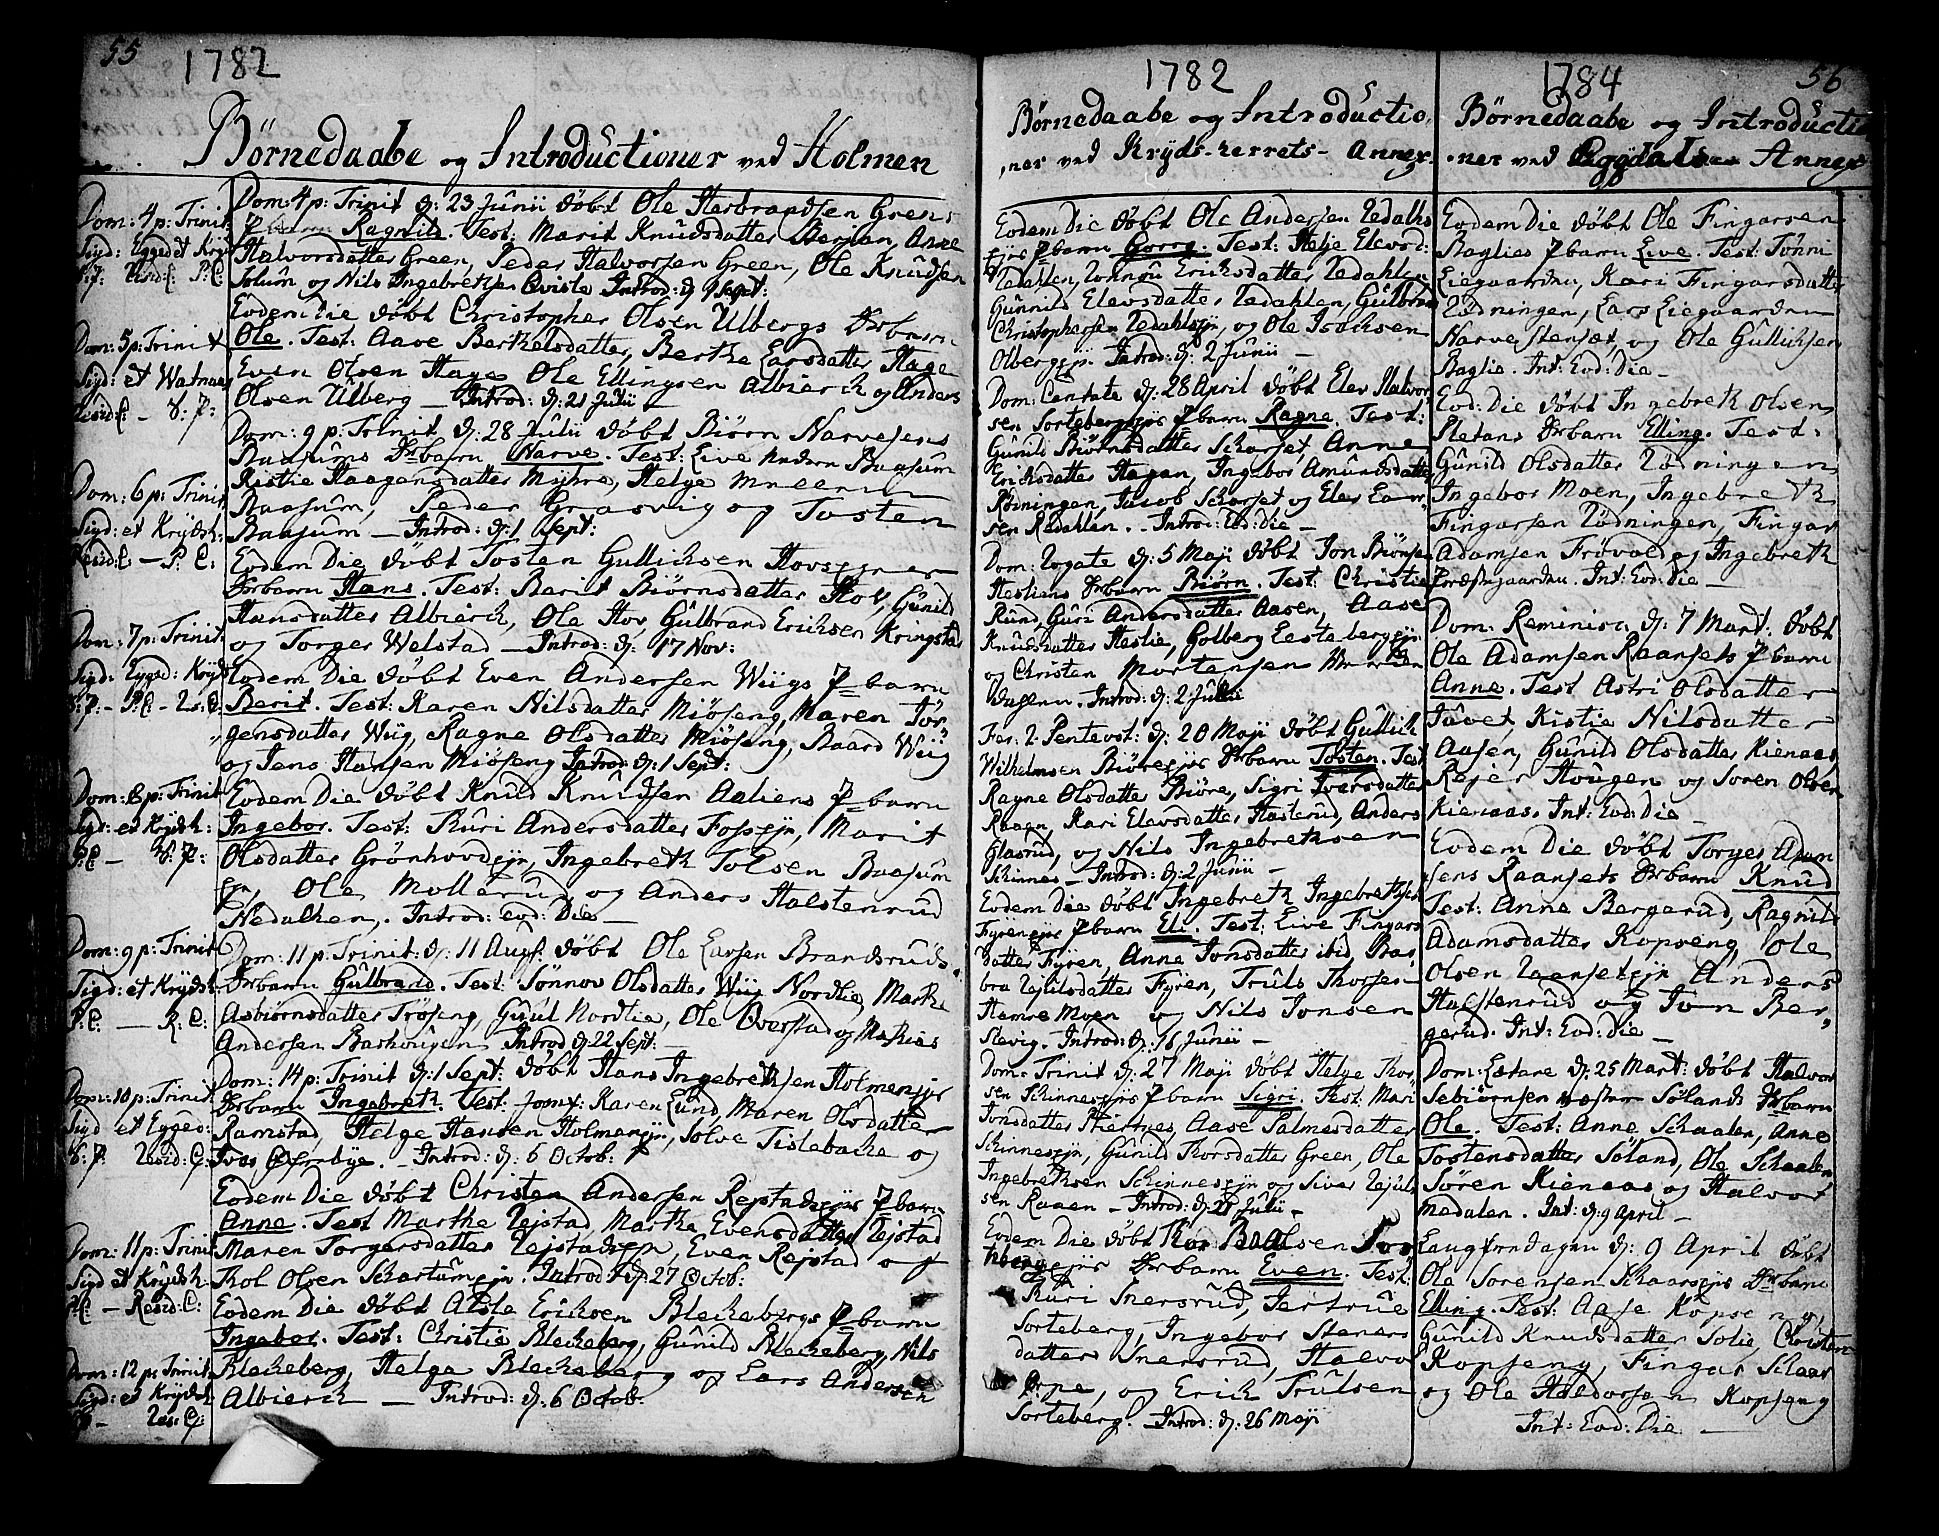 55
1782
Börnedaabe og Introductioner ved Holmen
Dom: 4 p: Trinit
Sigd: Egged et Kryd
Dom: 5 p: Trinit
Sigd: et Watnaas
Resid: C: – S: P:
Dom: 6 p: Trinit
Sigd: et Krydsh:
Resid: C: – P: C:
Dom: 7 p: Trinit
Sigd: Egged: Kryd
S: P: – P: C –
Dom: 8 p: Trinit
Sigd: et Krydsh:
P: C – S: P:
Dom: 9 p: Trinit
Sigd: et Krydsh:
P: C: – R: C:
Dom: 10 p: Trinit
Sigd et Egged:
S: P. Resid: C:
Dom: 11 p: Trinit
Sigd et Krydsh
– Resid: C:
Dom: 12 p: Trinit
Sigd: et Krydsh
Dom: 4 p: Trinit d: 23 Junii döbt Ole Herbrandsen Grens
Pbarn Ragnild. Test: Marit Knudsdatter Berjan, Anne
Halvorsdatter Green, Peder Halvorsen Green, Ole Knudsen
Solum og Nils Ingebretsen Qviste Introd: d: 9 Sept:
Eodem Die döbt Christopher Olsen Ulbergs Drbarn
Ole. Test: Aave Berthelsdatter, Berthe Larsdatter Hage
Even Olsen Hage Ole Ellingsen Albierch og Anders
Olsen Ulberg – Introd: d: 21 Julii –
Dom: 9 p: Trinit d: 28 Julii döbt Biörn Narvesens
Baasums Drbarn Narve. Test: Live Baasum
Kistie Haagensdatter Myhre, Helge
Baasum, Peder Grasvig og Tosten
Baasum – Introd: d: 1 Sept:
Eodem Die döbt Tosten Gullichsen Hovs
Drbarn Hans. Test: Berit Biörnsdatter Hov, Gunild
Hansdatter Albierch, Ole Hov, Gulbrand Erichsen Kringstad
og Torger Welstad – Introd: d: 17 Nov:
Eodem Die döbt Even Andersen Wiigs Pbarn
Berit. Test: Karen Nilsdatter Miöseng, Maren Jör„
„gensdatter Wiig, Ragne Olsdatter Miöseng, Baard Wiig
og Jens Hansen Miöseng Introd: d: 1 Sept:
Eodem Die döbt Knud Knudsen Aaliens Pbarn
Ingebor. Test: Kuri Andersdatter Fossejr, Marit
Olsdatter Grönhovdejr, Ingebreth Tolsen Baasum
ejr, Ole Mollerud og Anders Halstenrud
Nedalhen. Introd: eod: Die –
Dom: 11 p: Trinit d: 11 Aug: döbt Ole Larsen Brandsruds
Drbarn Gulbrand. Test: Sönnov Olsdatter Wiig Nordlie, Marthe
Asbiörnsdatter Tröseng, Guul Nordlie, Ole Overstad og Mathias
Andersen Bashougen Introd d: 22 Sept:
Dom: 14 p: Trinit d: 1 Sept: döbt Hans Ingebrethsen Holmenejr
Drbarn Ingebreth. Test: Karen Lund, Maren Olsdatter
Ramstad, Helge Hansen Holmenejr, Solve Tislebache og
Ivar Qvernbye. – Introd: d: 6 Octob:
Eodem Die döbt Christen Andersen Rejstadejr Pbarn
Anne. Test Marthe Rejstad, Marthe Evensdatter Rejstad
Maren Torgersdatter Rejstadejr, Even Rejstad og
Thol Olsen Schartumejr. Introd: d: 27 Octob:
Eodem Die döbt Atle Erichsen Blechebergs Pbarn
Ingeber. Test: Christie Blecheberg, Gunild Blecheberg, Nils
Blecheberg, Helge Blecheberg og Lars Andersen
Albierch – Introd: d: 6 Octob:
1782
Börnedaabe og Introductio„
„ner ved Kryds-herrets-Annex.
Eodem Die döbt Ole Andersen Redalhs
ejr Pbarn Borrg. Test: Helje Elevsd:
Redahlen, Ericksdatter Redahlen
Gunnild Elevsdatter Redahlen, Gulbrand
Christophersen Redahlsejr, og Ole Isachsen
Olbergejr. Introd: d: 2 Junii –
Dom: Cantate d: 28 April döbt Elev Halvor„
sen Sortebergejr Pbarn Ragne. Test:
Gunild Biörnsdatter Schorset Anne
Erichsdatter Hagen, Ingebor Amundsdatter
Röningen, Jacob Schorset og Elev Lar„
sen Redahlen. Introd: Eod: die –
Dom: Rogate d: 5 Maji döbt Jon Biörnsen
Hesliens Drbarn Biörn. Test: Christie
Rund, Guri Andersdatter Aasen, Aase
Knudsdatter Heslie, Golberg Eestebergejr
og Christen Mortensen
Introd: d: 2 Julii
Fer: 2 Pentecost: d: 20 Maji döbt Gullich
Wilhelmsen Biöreejr Drbarn Tosten. Test
Ragne Olsdatter Biöre, Sigri Iversdatter
Raaen, Kari Elevsdatter Haslerud, Anders
Glasrud, og Nils Ingebrethsen
Schinnes – Introd: d: 2 Junii –
Eodem die döbt Ingebreth Ingebrethsen
Fyrenejr Pbarn Eli. Test: Live Fingars
datter Fyren, Anne Jonsdatter ibid, Bar„
bra Rejulsdatter Fyren, Truls Thorsen
Hamre Moen og Nils Jonsen
Slevig. Introd: d: 16 Junii –
Dom: Trinit d: 27 Maji döbt Helge Thor„
sen Schinnesejrs Pbarn Sigri. Test: Mari
Jonsdatter Stiernes, Aase Salmesdatter
Schinnesejr, Gunild Thorsdatter Green, Ole
Ingebrethsen Schinnesejr og Siver Rejul„
sen Raaen – Introd: d: 21 Julii –
Eodem Die döbt Thor Olsen Sor„
thbergejr Drbarn Even. Test:
Kuri Snersrud, Jertrue
Sorteberg, Ingebor Steners
datter Snersrud, Halvor
og Erich Trulsen
Sorteberg. – Introd: d: 26 Maji
1784
56
Börnedaabe og Introductio
„ner ved Eggedals Annex
Eodem Die döbt Ole Fingarsen
Baglies Pbarn Live. Test: Tönni
Liegaarden, Kari Fingarsdatter
Rödningen, Lars Liegaarden
Narve Stenset, og Ole Gullichsen
Baglie. Int: Eod: Die –
Eod: Die döbt Ingebreth Olsen
Sletans Drbarn Elling. Test:
Gunild Olsdatter Rödningen
Ingebor Moen, Ingebreth
Fingarsen Rödningen, Fingar
Adamsen Frövold og Ingebreth
Præstegaarden. Int: Eod: Die –
Dom: Reminisc: d: 7 Mart: döbt
Ole Adamsen Raansets Pbarn
Anne. Test Astri Olsdatter
Tuvet, Kistie Nilsdatter
Aasen, Gunild Olsdatter Kienaas
Rejer Hougen og Soren Olsen
Kienaas. Int: Eod: Die –
Eodem Die döbt Torges Adam
sens Raansets Drbarn Knud
Test: Anne Bergerud, Ragnild
Adamsdatter Kopseng, Ole
Olsen Anders
Halstenrud og Jon Ber„
gerud. Int: Eod: Die –
Dom: Lætare d: 25 Mart: döbt Halvor
Sebiörnsen Sölands Drbarn
Ole. Test: Anne Schaalen, Anne
Tostensdatter Söland, Ole Schaalen,
Sören Kienaas og Halvor
Medalen. Int: d: 9 April –
Langfredagen d: 9 April döbt
Ole Sorensen Schaarsejrs Drbarn
Elling. Test: Aase Kopseng,
Gunild Knudsdatter Solie, Christen
Kopseng, Fingar Schaar
og Ole Haldorsen Kopseng
Int: Eod: Die –